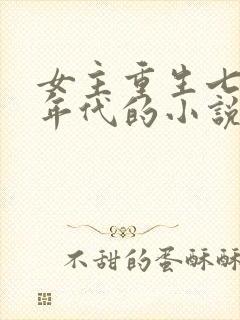 女主重生七
年代的小説
不甜的蛋酥酥